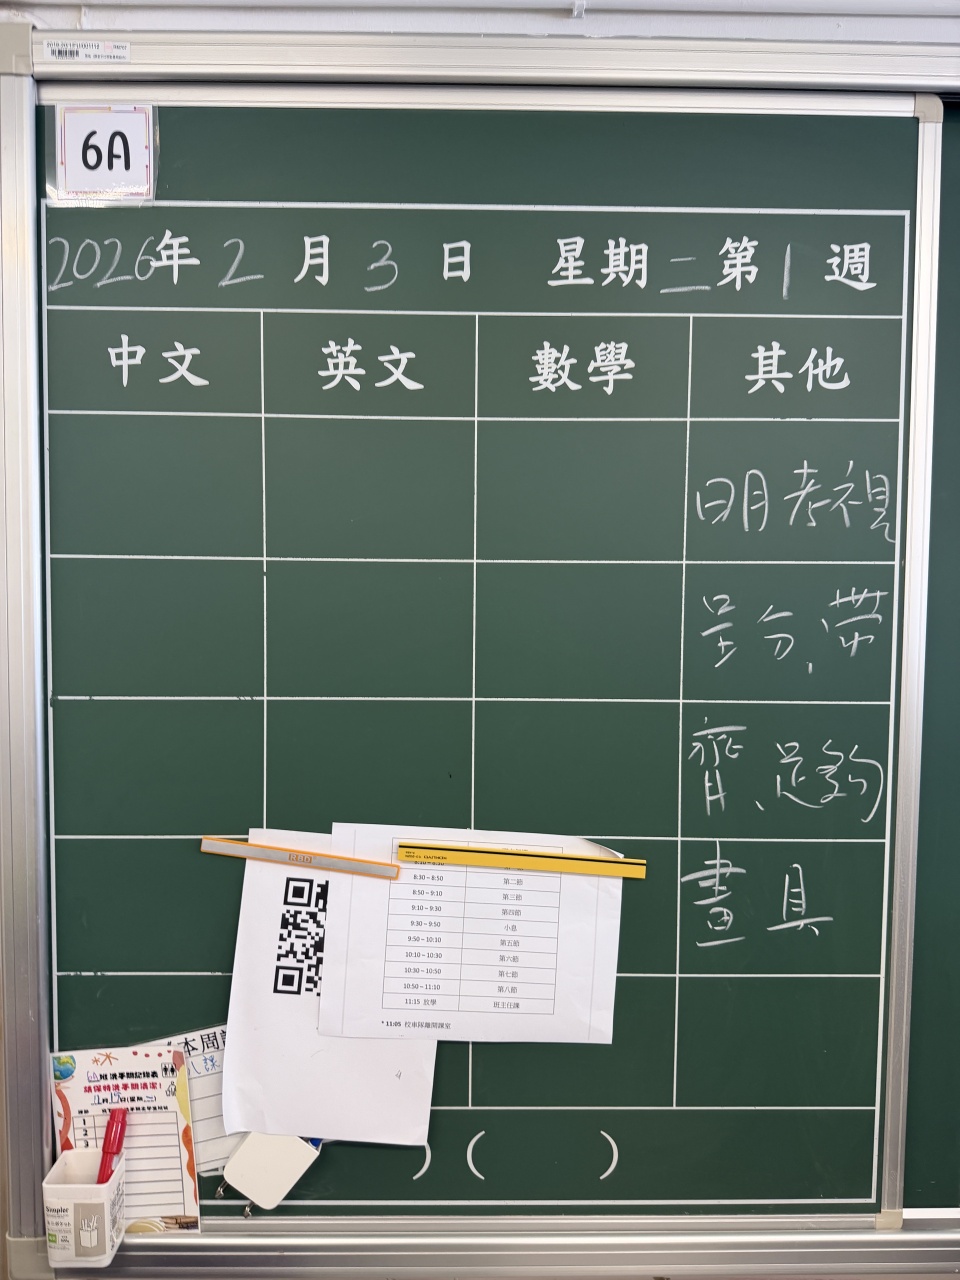 6A
2026年2月3日 星期二第1週
中文 英文 數學 其他
明考視
呈分、帶
齊、足夠
畫具
8:30～8:50 第二節
8:50～9:10 第三節
9:10～9:30 第四節
9:30～9:50 小息
9:50～10:10 第五節
10:10～10:30 第六節
10:30～10:50 第七節
10:50～11:10 第八節
11:15 放學 班主任課
* 11:05 校車隊離開課室
本周
6A班洗手間記錄表
請保持洗手間清潔！
1
2
3
) ( )